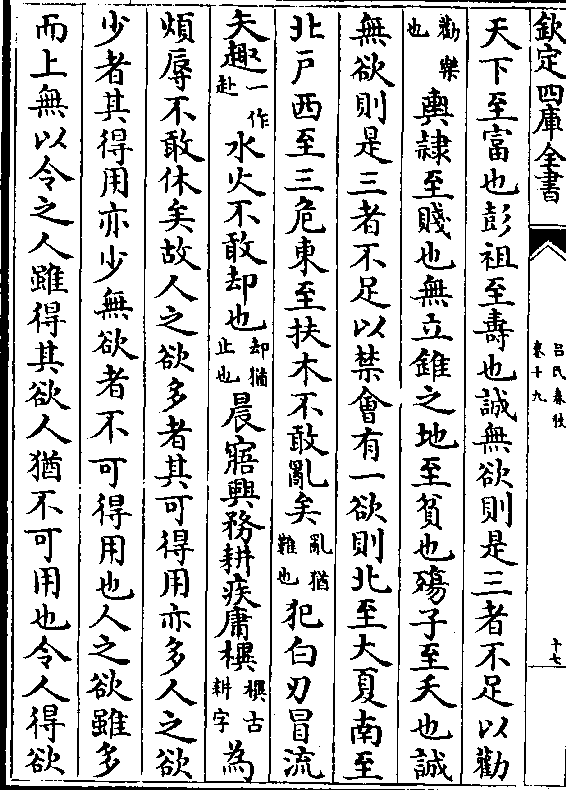 欽定四庫全書
呂氏春秋
卷十九
十七
天下至富也彭祖至壽也誠無欲則是三者不足以勸
勸樂
也
輿隷至賤也無立錐之地至貧也殤子至夭也誠
無欲則是三者不足以禁會有一欲則北至大夏南至
北戸西至三危東至扶木不敢亂矣
亂猶
難也
犯白刃冒流
矢趣
一作
赴
水火不敢却也
却猶
止也
晨寤興務耕疾庸樸
樸古
耕字
為
煩辱不敢休矣故人之欲多者其可得用亦多人之欲
少者其得用亦少無欲者不可得用也人之欲雖多
而上無以令之人雖得其欲人猶不可用也令人得欲